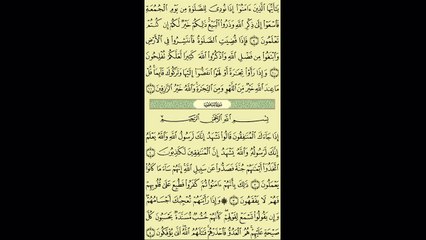 يَٰٓأَيُّهَا ٱلَّذِينَ ءَامَنُوٓا۟ إِذَا نُودِىَ لِلصَّلَوٰةِ مِن يَوْمِ ٱلْجُمُعَةِ
فَٱسْعَوْا۟ إِلَىٰ ذِكْرِ ٱللَّهِ وَذَرُوا۟ ٱلْبَيْعَ ذَٰلِكُمْ خَيْرٌ لَّكُمْ إِن كُنتُمْ
تَعْلَمُونَ ٩ فَإِذَا قُضِيَتِ ٱلصَّلَوٰةُ فَٱنتَشِرُوا۟ فِى ٱلْأَرْضِ
وَٱبْتَغُوا۟ مِن فَضْلِ ٱللَّهِ وَٱذْكُرُوا۟ ٱللَّهَ كَثِيرًا لَّعَلَّكُمْ تُفْلِحُونَ
١٠ وَإِذَا رَأَوْا۟ تِجَٰرَةً أَوْ لَهْوًا ٱنفَضُّوٓا۟ إِلَيْهَا وَتَرَكُوكَ قَآئِمًا قُلْ
مَا عِندَ ٱللَّهِ خَيْرٌ مِّنَ ٱللَّهْوِ وَمِنَ ٱلتِّجَٰرَةِ وَٱللَّهُ خَيْرُ ٱلرَّٰزِقِينَ ١١
بِسْمِ ٱللَّهِ ٱلرَّحْمَٰنِ ٱلرَّحِيمِ
إِذَا جَآءَكَ ٱلْمُنَٰفِقُونَ قَالُوا۟ نَشْهَدُ إِنَّكَ لَرَسُولُ ٱللَّهِ وَٱللَّهُ يَعْلَمُ
إِنَّكَ لَرَسُولُهُۥ وَٱللَّهُ يَشْهَدُ إِنَّ ٱلْمُنَٰفِقِينَ لَكَٰذِبُونَ ١
ٱتَّخَذُوٓا۟ أَيْمَٰنَهُمْ جُنَّةً فَصَدُّوا۟ عَن سَبِيلِ ٱللَّهِ إِنَّهُمْ سَآءَ مَا كَانُوا۟
يَعْمَلُونَ ٢ ذَٰلِكَ بِأَنَّهُمْ ءَامَنُوا۟ ثُمَّ كَفَرُوا۟ فَطُبِعَ عَلَىٰ قُلُوبِهِمْ
فَهُمْ لَا يَفْقَهُونَ ٣ ۞ وَإِذَا رَأَيْتَهُمْ تُعْجِبُكَ أَجْسَامُهُمْ
وَإِن يَقُولُوا۟ تَسْمَعْ لِقَوْلِهِمْ كَأَنَّهُمْ خُشُبٌ مُّسَنَّدَةٌ يَحْسَبُونَ كُلَّ
صَيْحَةٍ عَلَيْهِمْ هُمُ ٱلْعَدُوُّ فَٱحْذَرْهُمْ قَٰتَلَهُمُ ٱللَّهُ أَنَّىٰ يُؤْفَكُونَ ٤